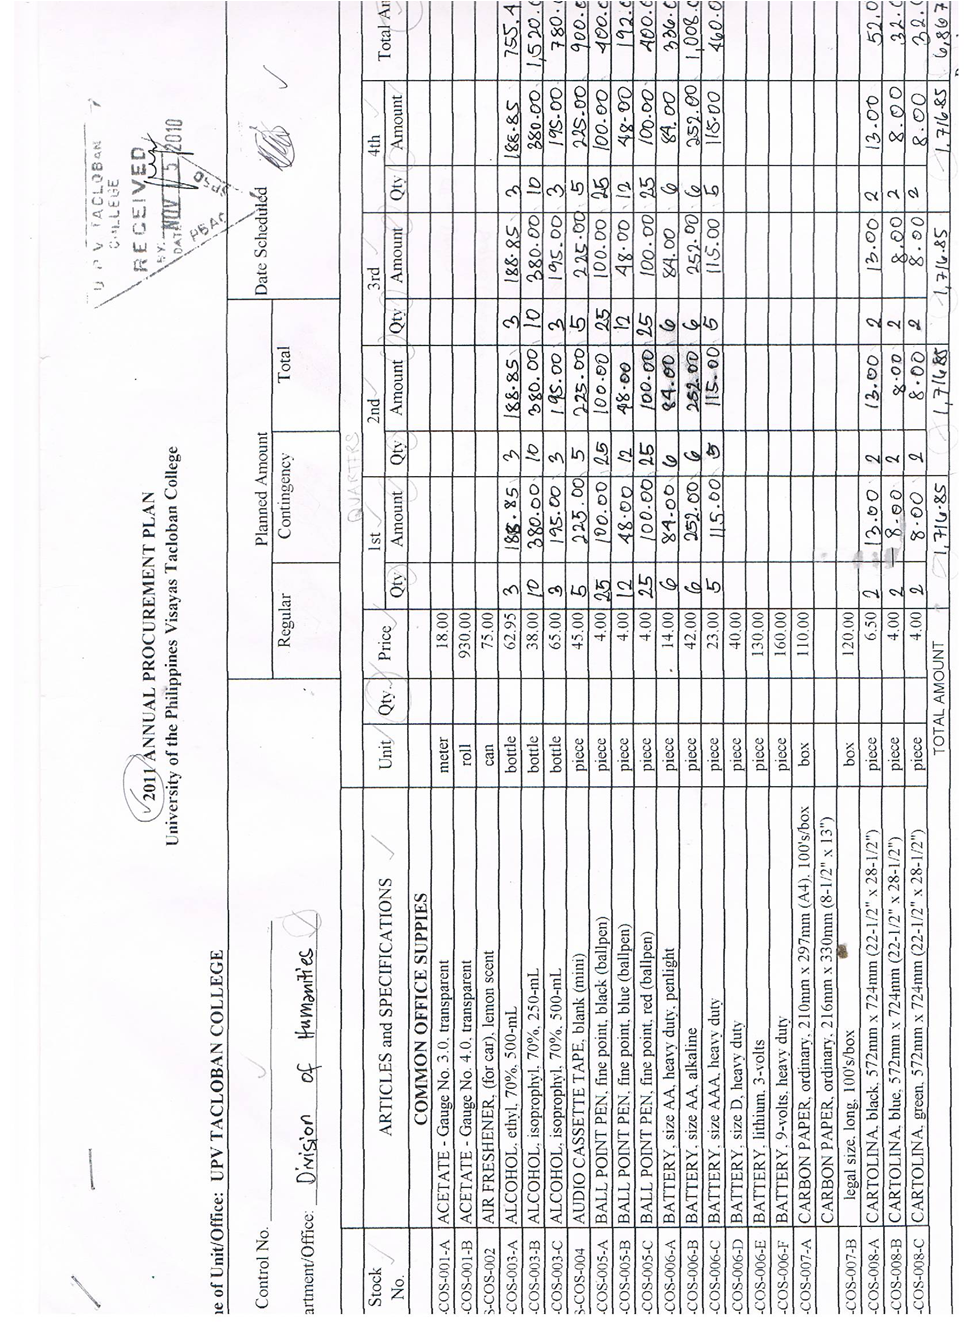 U P V TACLOBAN
COLLEGE
RECEIVED
BY:
DATE NOV 15 2010
2011 ANNUAL PROCUREMENT PLAN
University of the Philippines Visayas Tacloban College
ne of Unit/Office: UPV TACLOBAN COLLEGE
Control No. Planned Amount Date Scheduled
artment/Office: Division of Humanities Regular Contingency Total
QUARTERS
Stock No. ARTICLES and SPECIFICATIONS Unit Qty. Price 1st 2nd 3rd 4th Total Am
Qty Amount Qty Amount Qty Amount Qty Amount
COMMON OFFICE SUPPIES
-COS-001-A ACETATE - Gauge No. 3.0, transparent meter 18.00
-COS-001-B ACETATE - Gauge No. 4.0, transparent roll 930.00
S-COS-002 AIR FRESHENER, (for car), lemon scent can 75.00
-COS-003-A ALCOHOL, ethyl, 70%, 500-mL bottle 62.95 3 188.85 3 188.85 3 188.85 3 188.85 755.4
-COS-003-B ALCOHOL, isoprophyl, 70%, 250-mL bottle 38.00 10 380.00 10 380.00 10 380.00 10 380.00 1,520.0
-COS-003-C ALCOHOL, isoprophyl, 70%, 500-mL bottle 65.00 3 195.00 3 195.00 3 195.00 3 195.00 780.0
S-COS-004 AUDIO CASSETTE TAPE, blank (mini) piece 45.00 5 225.00 5 225.00 5 225.00 5 225.00 900.0
-COS-005-A BALL POINT PEN, fine point, black (ballpen) piece 4.00 25 100.00 25 100.00 25 100.00 25 100.00 400.0
-COS-005-B BALL POINT PEN, fine point, blue (ballpen) piece 4.00 12 48.00 12 48.00 12 48.00 12 48.00 192.0
-COS-005-C BALL POINT PEN, fine point, red (ballpen) piece 4.00 25 100.00 25 100.00 25 100.00 25 100.00 400.0
-COS-006-A BATTERY, size AA, heavy duty, penlight piece 14.00 6 84.00 6 84.00 6 84.00 6 84.00 336.0
-COS-006-B BATTERY, size AA, alkaline piece 42.00 6 252.00 6 252.00 6 252.00 6 252.00 1,008.0
-COS-006-C BATTERY, size AAA, heavy duty piece 23.00 5 115.00 5 115.00 5 115.00 5 115.00 460.0
-COS-006-D BATTERY, size D, heavy duty piece 40.00
-COS-006-E BATTERY, lithium, 3-volts piece 130.00
-COS-006-F BATTERY, 9-volts, heavy duty piece 160.00
-COS-007-A CARBON PAPER, ordinary, 210mm x 297mm (A4), 100's/box box 110.00
CARBON PAPER, ordinary, 216mm x 330mm (8-1/2" x 13")
-COS-007-B legal size, long, 100's/box box 120.00
-COS-008-A CARTOLINA, black, 572mm x 724mm (22-1/2" x 28-1/2") piece 6.50 2 13.00 2 13.00 2 13.00 2 13.00 52.0
-COS-008-B CARTOLINA, blue, 572mm x 724mm (22-1/2" x 28-1/2") piece 4.00 2 8.00 2 8.00 2 8.00 2 8.00 32.0
-COS-008-C CARTOLINA, green, 572mm x 724mm (22-1/2" x 28-1/2") piece 4.00 2 8.00 2 8.00 2 8.00 2 8.00 32.0
TOTAL AMOUNT 1,716.85 1,716.85 1,716.85 1,716.85 6,867